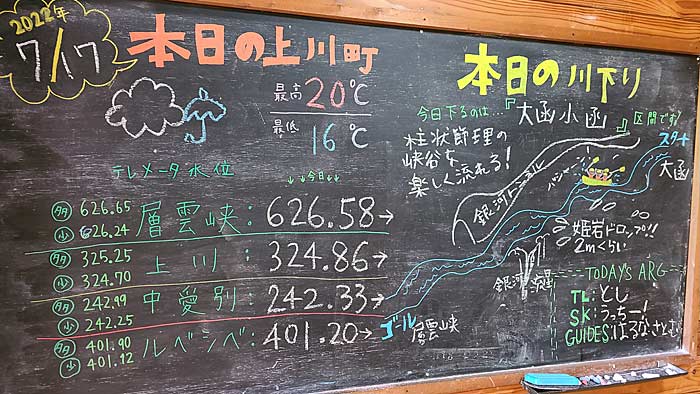 2022年
7/17
本日の上川町
最高 20℃
最低 16℃
テレメータ水位
↓↓今日↓↓
多 626.65
少 626.24
層雲峡: 626.58→
多 325.25
少 324.70
上川: 324.86→
多 242.99
少 242.25
中愛別: 242.33→
多 401.90
少 401.12
ルベシベ: 401.20→
本日の川下り
今日下るのは…『大函小函』区間です!
柱状節理の
峡谷を
楽しく流れる!
スタート
大函
銀河トンネル
姫岩ドロップ!!
2mくらい
ゴール
層雲峡
TODAY'S ARG
TL:とし
SK:うっちー!
GUIDES:はるな、さとむ